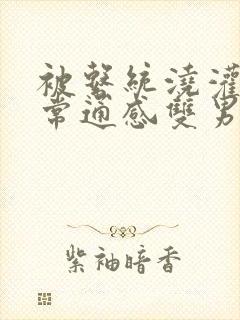 被繫統澆灌
常通感雙男
紫袖暗香